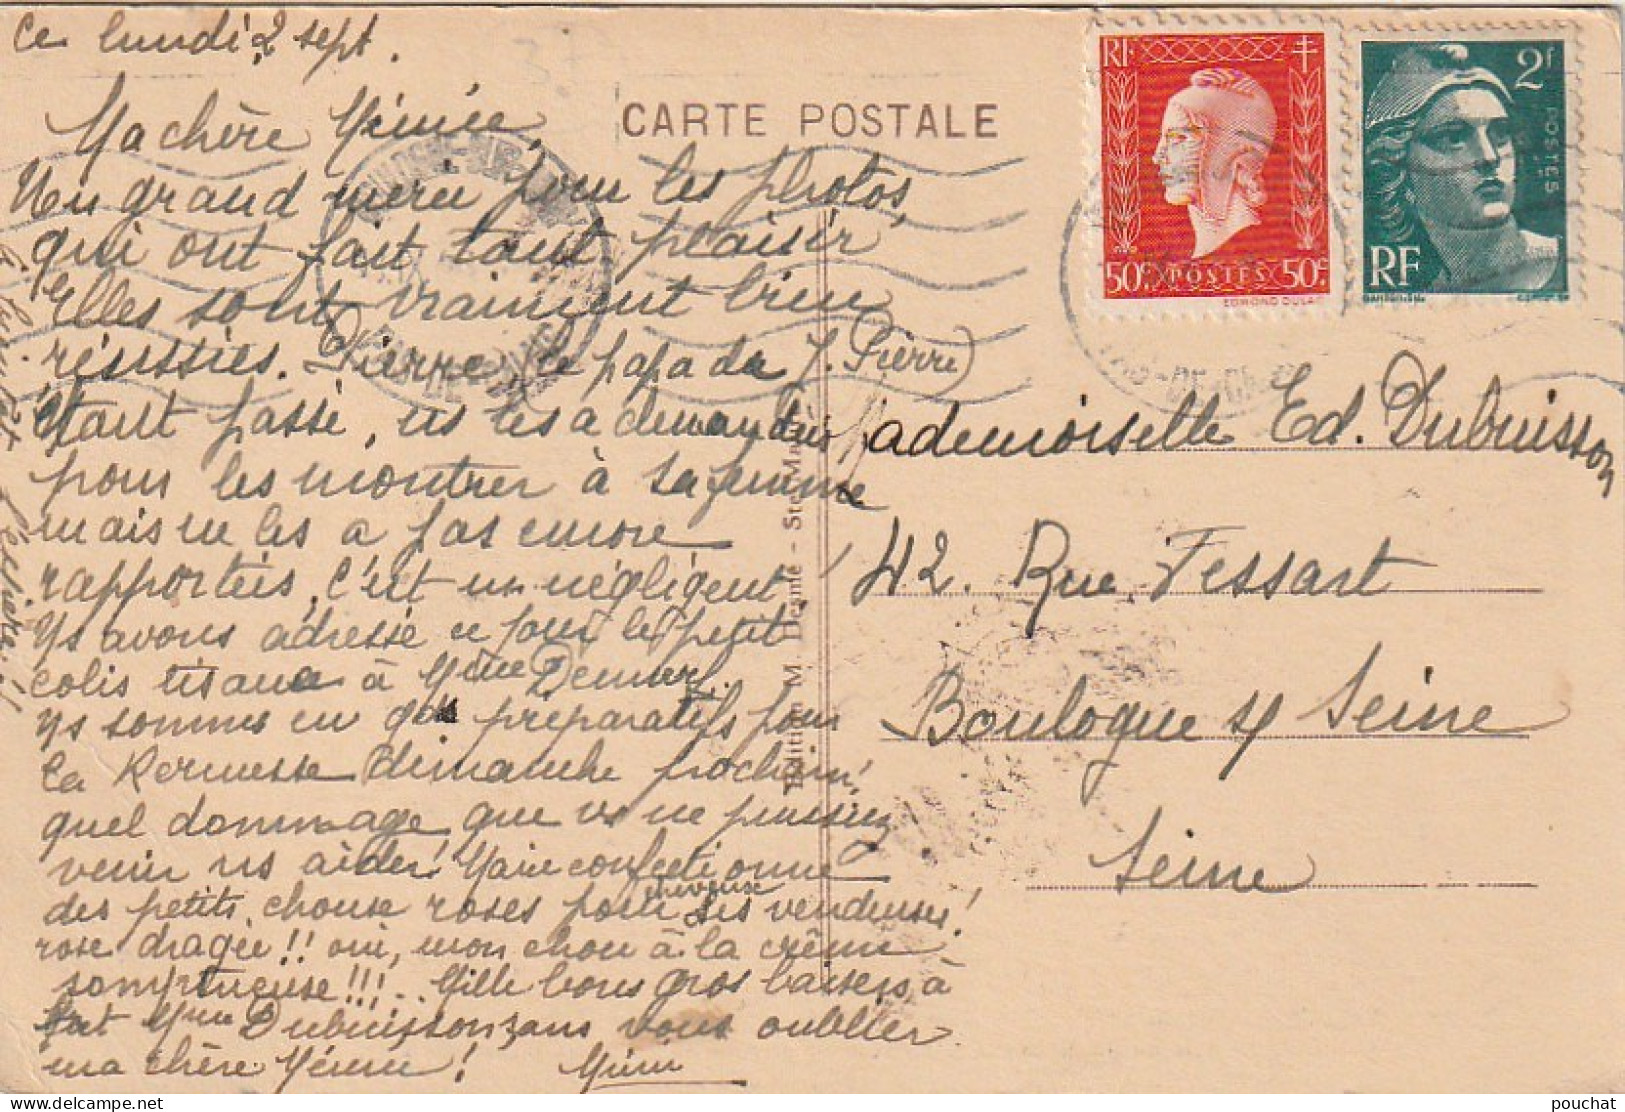 Ce lundi 2 sept.
Ma chère Mémée,
Un grand merci pour les photos,
qui ont fait tant plaisir
Elles sont vraiment bien
réussies. Pierre, le papa de J. Pierre
étant passé, ns les a demandées
pour les montrer à sa femme
mais ne les a pas encore
rapportées, c'est un négligent.
Ns avons adressé ce jour le petit
colis tisane à Mme
Ns sommes en gds préparatifs pour
la Kermesse Dimanche prochain,
quel dommage que vs ne puissiez
venir ns aider! Marie confectionne
des petits choux roses pour ses vendeuses!
rose dragée!! oui, mon chou à la crème
somptueuse!!!.. Mille bons gros baisers, à
Mme Dubuisson, sans vous oublier
ma chère Mémée!
CARTE POSTALE
RF
50c POSTES 50c
EDMOND DULAC
2f
POSTES
RF
Mademoiselle Ed. Dubuisson
42. Rue Fessart
Boulogne s/ Seine
Seine
pouchat